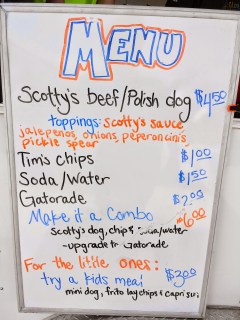 MENU
Scotty's beef/Polish dog $4.50
toppings: Scotty's sauce
jalepenos, onions, peperoncini's
pickle spear
Tim's chips $1.00
Soda/Water $1.50
Gatorade $2.00
Make it a Combo $6.00
Scotty's dog, chips soda/water
-upgrade to Gatorade
For the little ones:
try a kids meal $3.00
mini dog, frito lay chips & Capri Sun